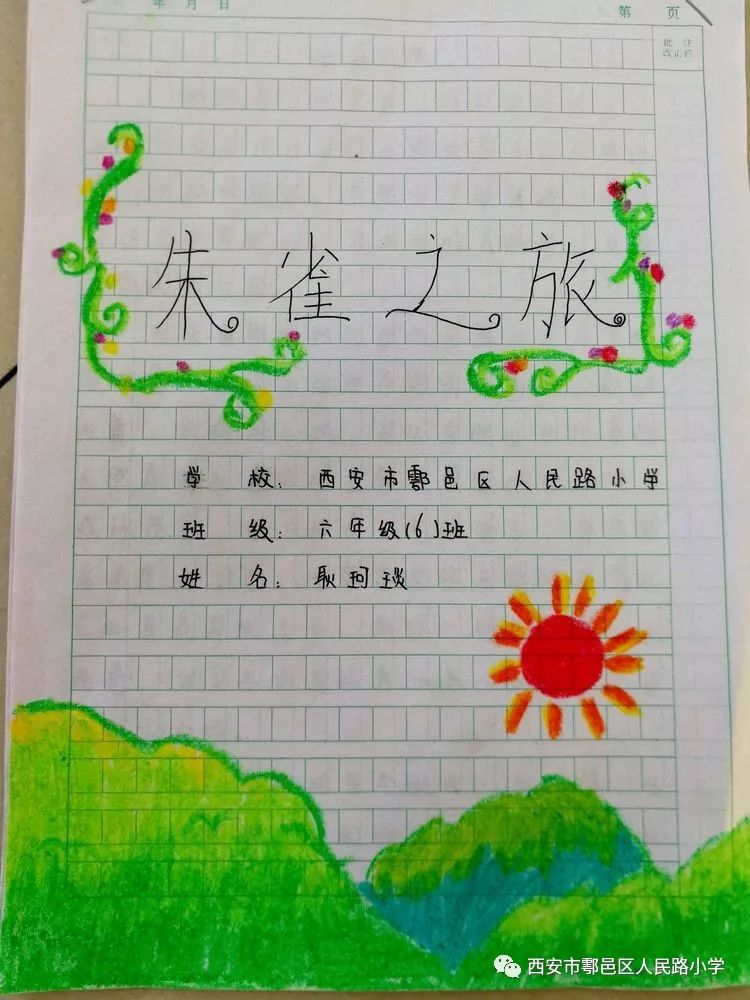 年 月 日
第 页
批 注
改正栏
朱雀之旅
学 校: 西安市鄠邑区人民路小学
班 级: 六年级(6)班
姓 名: 耿珂琰
西安市鄠邑区人民路小学